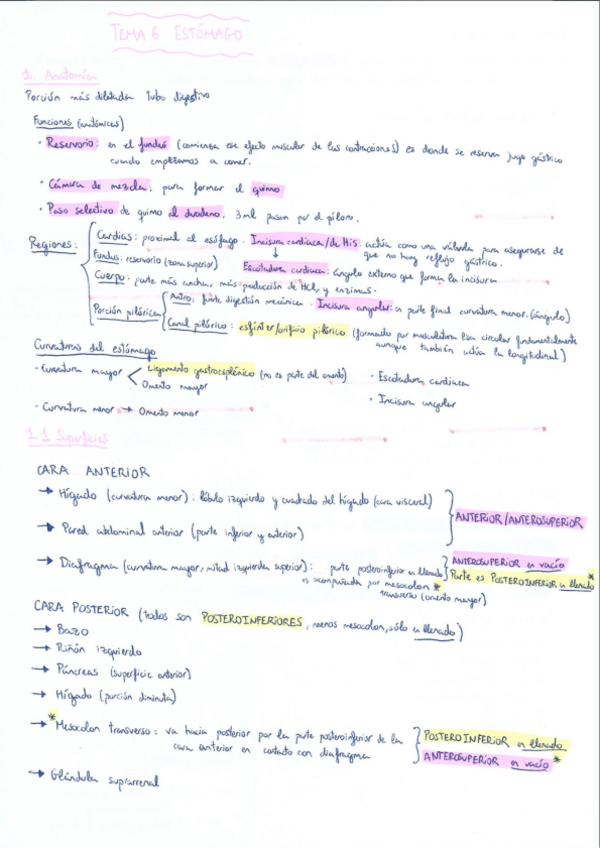 TEMA 6 ESTÓMAGO
1. Anatomía
Porción más dilatada tubo digestivo
Funciones (anatómicas)
· Reservorio: en el fundus (comienza ese efecto muscular de las contracciones) es donde se reserva jugo gástrico
cuando empezamos a comer.
· Cámara de mezcla: para formar el quimo
· Paso selectivo de quimo al duodeno: 3 ml pasan por el píloro.
Regiones:
Cardias: proximal al esófago. Incisura cardiaca/de His: actúa como una válvula para asegurarse de
que no hay reflujo gástrico.
Fundus: reservorio (zona superior)
Escotadura cardiaca: ángulo externo que forma la incisura
Cuerpo: parte más ancha, más producción de HCl y enzimas.
Porción pilórica
Antro: parte digestión mecánica · Incisura angular: a parte final curvatura menor. (ángulo)
Canal pilórico: esfínter/orificio pilórico (formado por musculatura lisa circular fundamentalmente
aunque también actúa la longitudinal)
Curvaturas del estómago
· Curvatura mayor
Ligamento gastroesplénico (no es parte del omento)
Omento mayor
· Escotadura cardiaca
· Incisura angular
· Curvatura menor → Omento menor
1.1 Superficies
CARA ANTERIOR
→ Hígado (curvatura menor): lóbulo izquierdo y cuadrado del hígado (cara visceral)
ANTERIOR/ANTEROSUPERIOR
→ Pared abdominal anterior (parte inferior y anterior)
→ Diafragma (curvatura mayor, mitad izquierda superior): parte posteroinferior en llenado
es acompañada por mesocolon *
transverso (omento mayor)
ANTEROSUPERIOR en vacío
Parte es POSTEROINFERIOR en llenado *
CARA POSTERIOR (todos son POSTEROINFERIORES, menos mesocolon, sólo en llenado)
→ Bazo
→ Riñón izquierdo
→ Páncreas (superficie anterior)
→ Hígado (porción diminuta)
→ * Mesocolon transverso: va hacia posterior por la parte posteroinferior de la
cara anterior en contacto con diafragma
POSTEROINFERIOR en llenado
ANTEROSUPERIOR en vacío *
→ Glándula suprarrenal